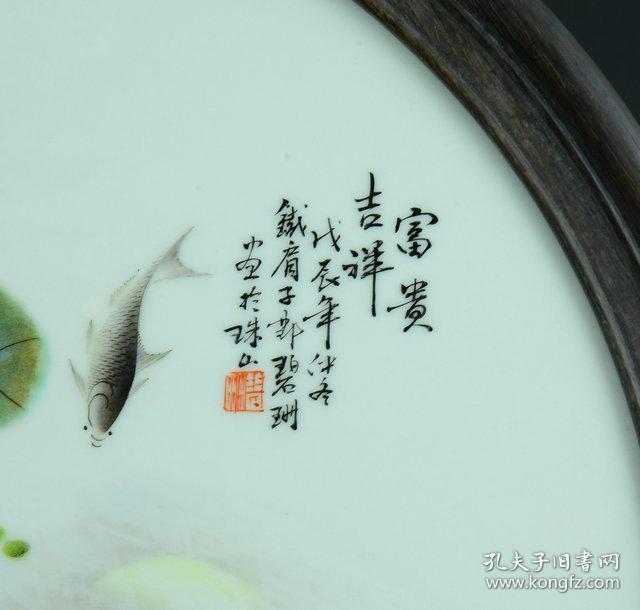 富貴
吉祥
戊辰年仲冬
鐵肩子鄧碧珊
畫於珠山
孔夫子旧书网
www.kongfz.com